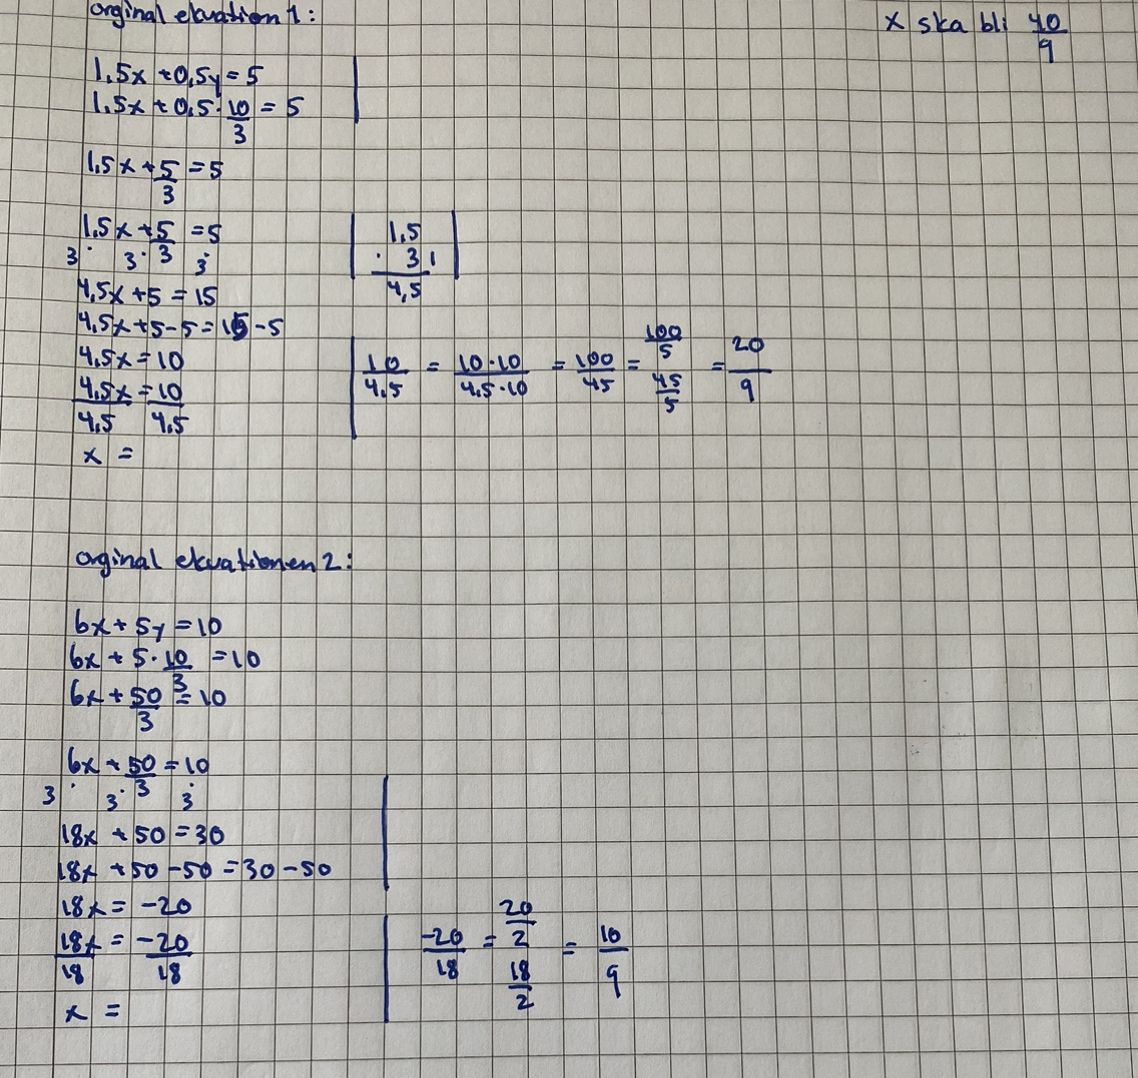 orginal ekvation 1:
x ska bli 40/9
1,5x + 0,5y = 5
1,5x + 0,5 · 10/3 = 5
1,5x + 5/3 = 5
1,5x + 5/3 = 5
3· 3· 3·
1,5
· 3 1
4,5
4,5x + 5 = 15
4,5x + 5 - 5 = 15 - 5
4,5x = 10
4,5x/4,5 = 10/4,5
10/4,5 = 10·10/4,5·10 = 100/45 = 100/5 / 45/5 = 20/9
x =
orginal ekvationen 2:
6x + 5y = 10
6x + 5 · 10/3 = 10
6x + 50/3 = 10
6x + 50/3 = 10
3· 3· 3·
18x + 50 = 30
18x + 50 - 50 = 30 - 50
18x = -20
18x/18 = -20/18
-20/18 = 20/2 / 18/2 = 10/9
x =